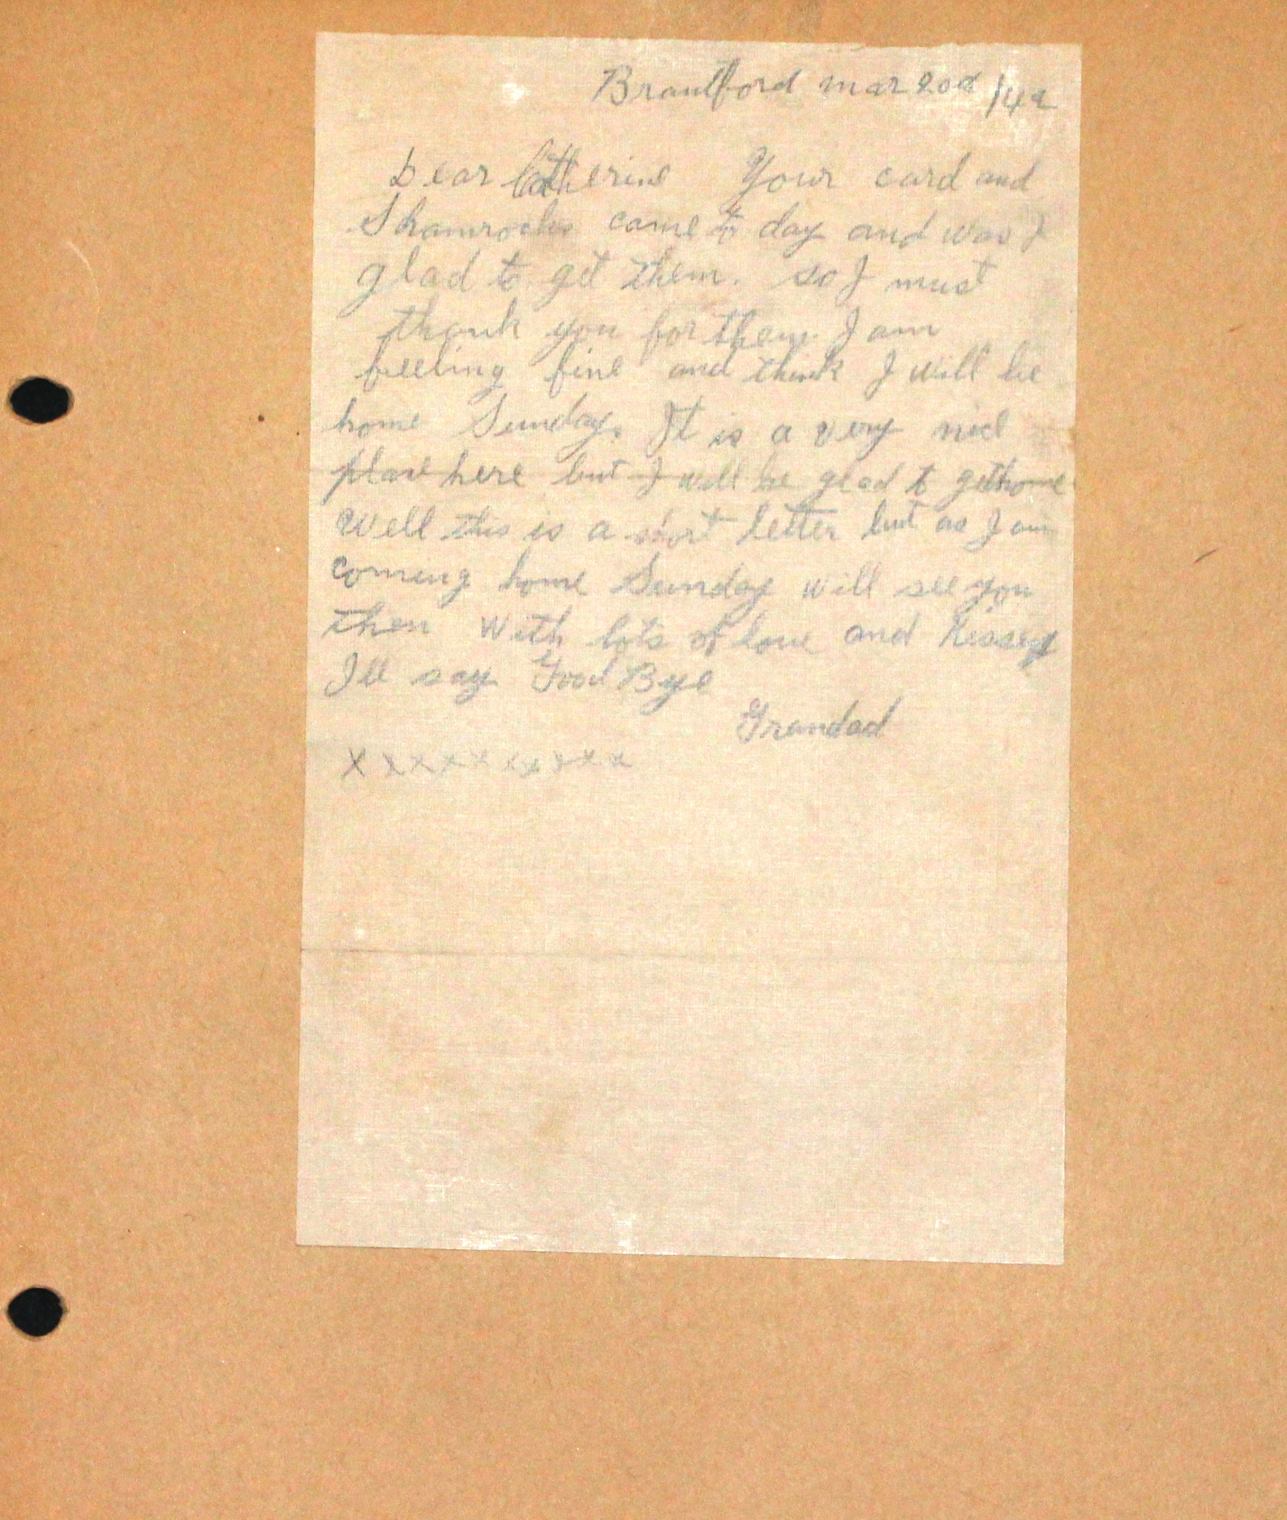 Brantford Mar 20th /42
Dear Catherine Your card and
Shamrocks came to day and was I
glad to get them. so I must
thank you for them. I am
feeling fine and think I will be
home Sunday. It is a very nice
place here but I will be glad to get home
Well this is a short letter but as I am
coming home Sunday will see you
then With lots of love and kisses
Ill say Good Bye
Grandad
x x x x x x x x x x